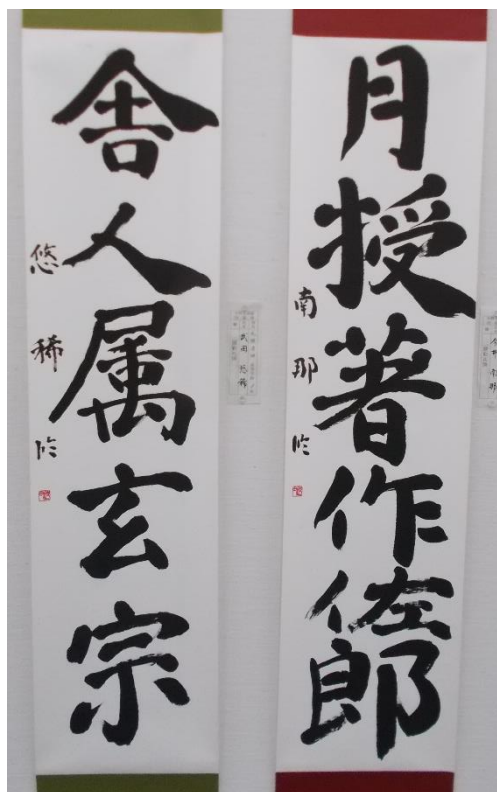 月授著作佐郎
南那臨
舎人属玄宗
悠稀臨